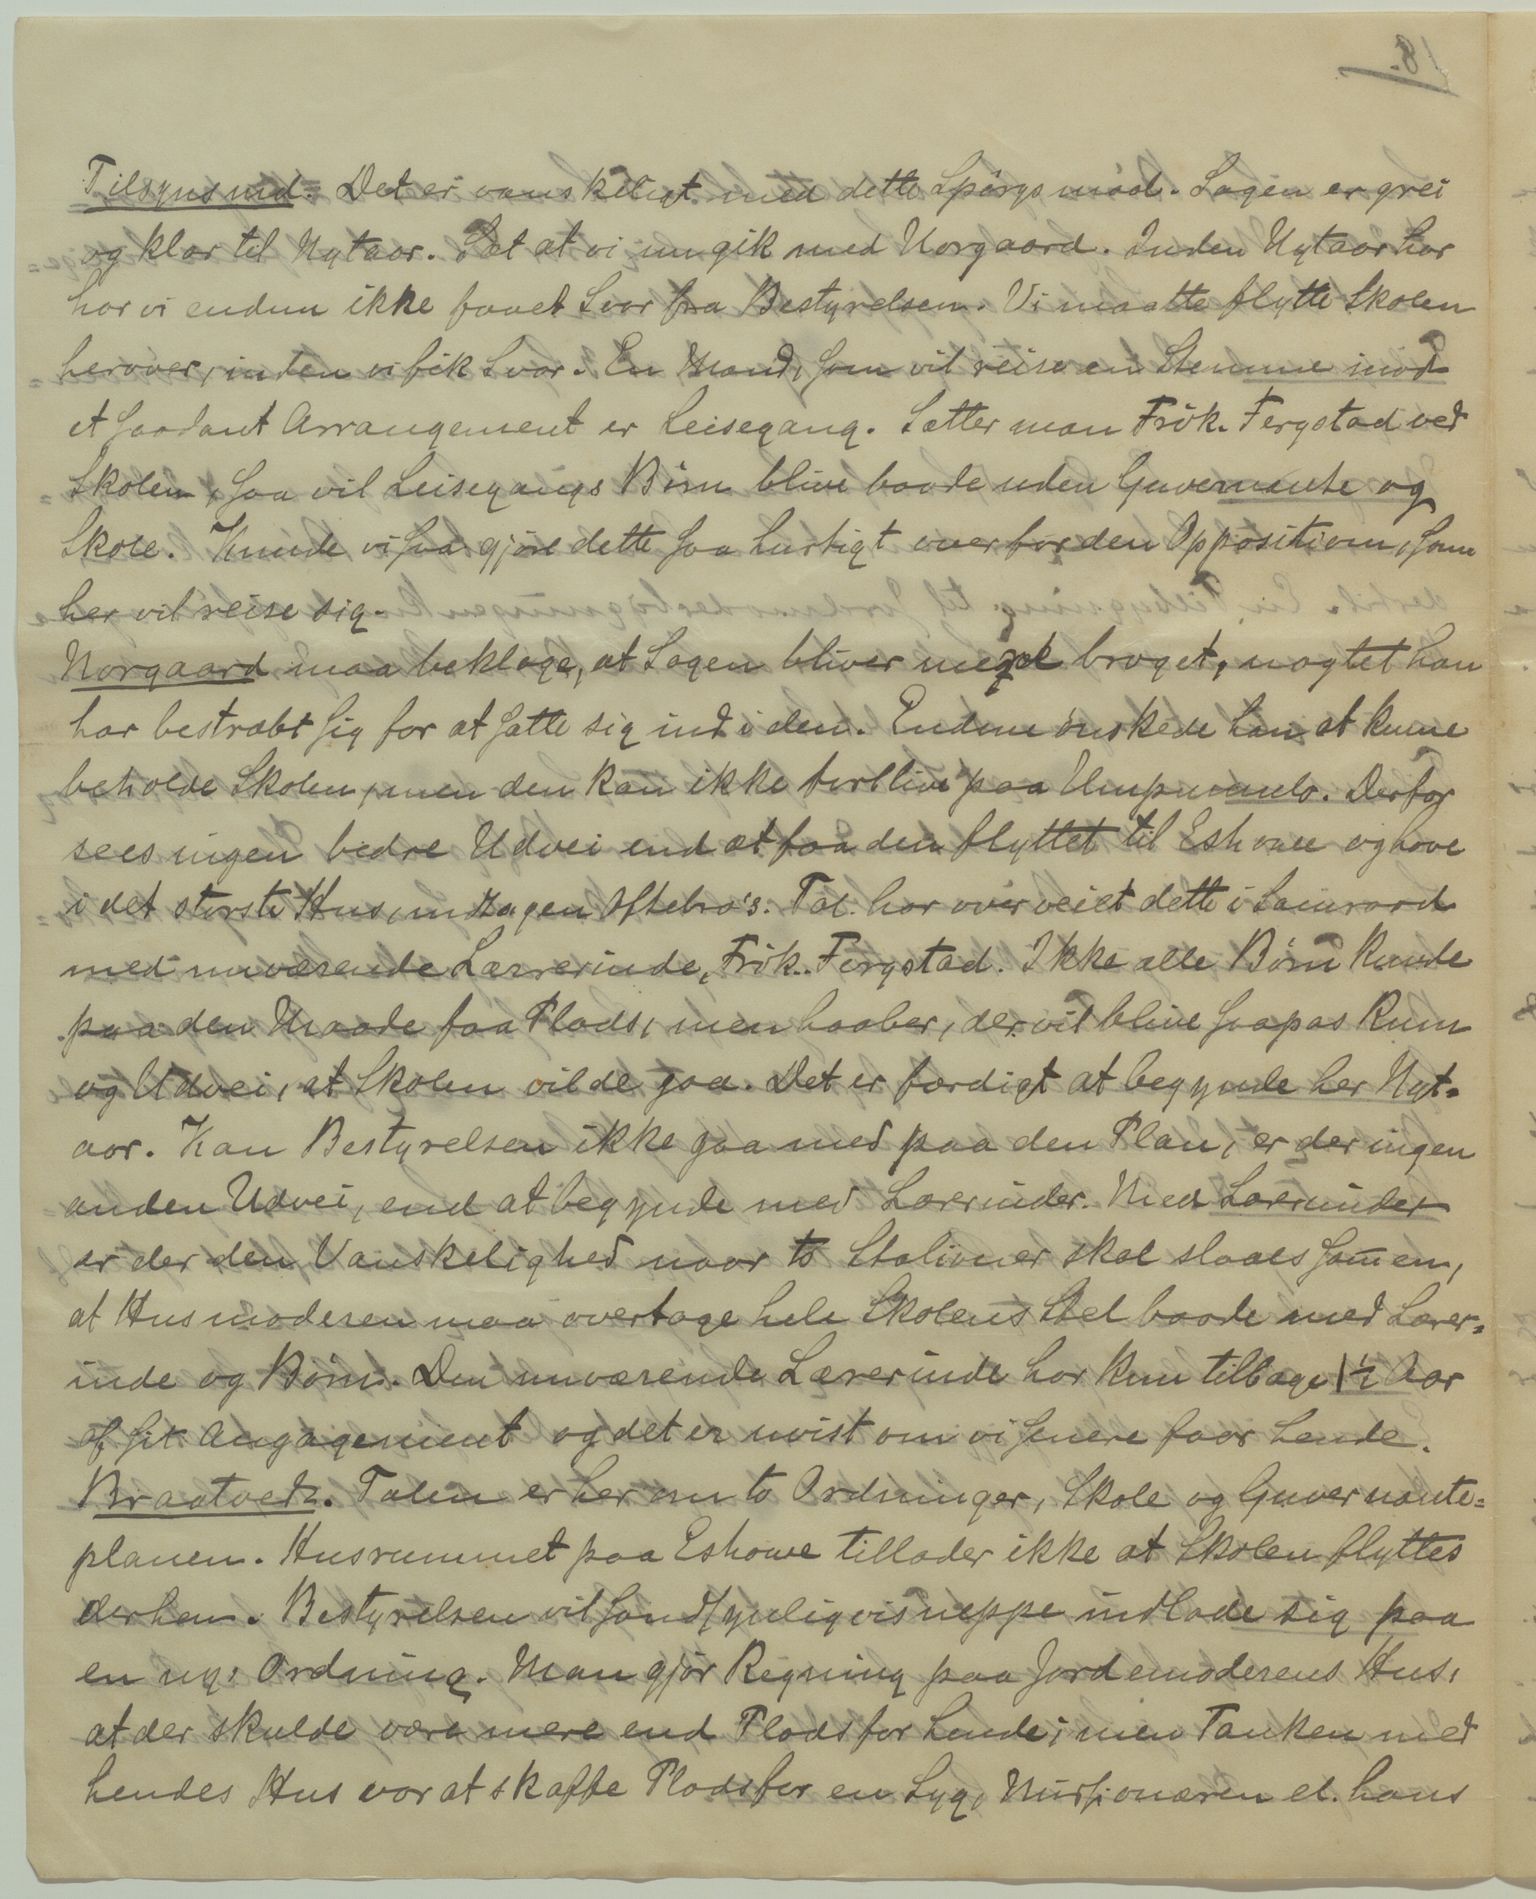 Tilsynsmd. Det er vanskeligt med dette Spörgsmaal. Sagen er grei
og klar til Nytaar. Sæt at vi nu gik med Norgaard. Inden Nytaar har
har vi endnu ikke faaet Svar fra Bestyrelsen. Vi maatte flytte Skolen
herover, inden vi fik Svar. En Mand, som vil reise en Stemme mod
et saadant Arrangement er Leisegang. Sætter man Frök. Fergstad ved
Skolen, saa vil Leisegangs Börn blive baade uden Guvernante og
Skole. Kunde vi saa gjöre dette saa hurtigt overfor den Opposition, som
her vil reise sig.
Norgaard maa beklage, at Sagen bliver meget broget, uagtet han
har bestræbt sig for at sætte sig ind i den. Endnu önskede han at kunne
beholde Skolen, men den kan ikke forblive paa Umpumulo. Derfor
sees ingen bedre Udvei end at faa den flyttet til Eshowe og have
i det störste Hus, undtagen Oftebro's. Tal. har overveiet dette i Samraad
med nuværende Lærerinde, Frök. Fergstad. Ikke alle Börn kunde
paa den Maade faa Plads, men haaber, der vil blive saapas Rum
og Udvei, at Skolen vilde gaa. Det er færdigt at begynde her Nyt=
aar. Kan Bestyrelsen ikke gaa med paa den Plan, er der ingen
anden Udvei, end at begynde med Lærerinder. Med Lærerinder
er der den Vanskelighed naar to Stationer skal slaaes sam̄en,
at Husmoderen maa overtage hele Skolens Stel baade med Lærer=
inde og Börn. Den nuværende Lærerinde har kun tilbage 1½ Aar
af sit Angagement og det er uvist om vi senere faar hende.
Braatvedt. Talen er her om to Ordninger, Skole og Guvernante=
planen. Husrummet paa Eshowe tillader ikke at Skolen flyttes
derhen. Bestyrelsen vil sandsynligvis neppe indlade sig paa
en ny Ordning. Man gjör Regning paa Jordemoderens Hus,
at der skulde være mere end Plads for hende; men Tanken med
hendes Hus var at skaffe Plads for en syg, Missionæren el. hans